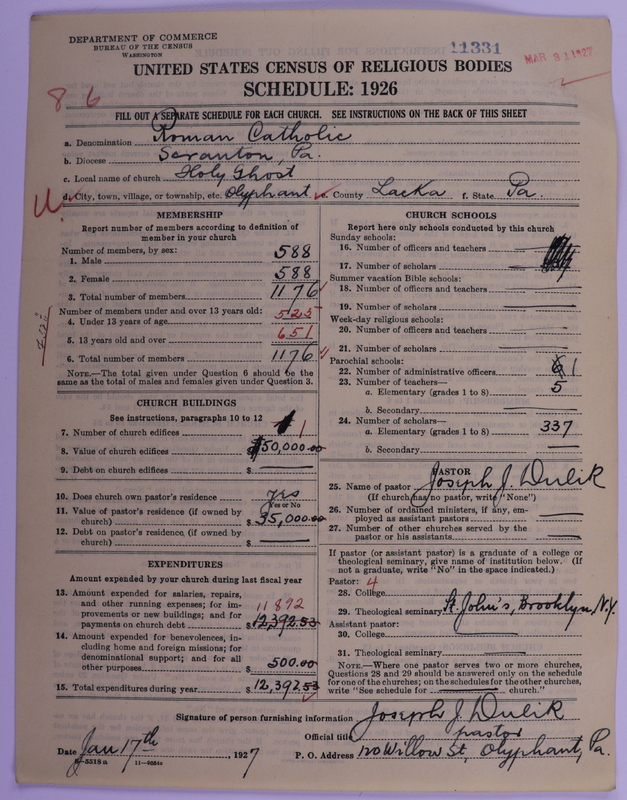 DEPARTMENT OF COMMERCE
BUREAU OF THE CENSUS
WASHINGTON
11331
MAR 31 1927
UNITED STATES CENSUS OF RELIGIOUS BODIES
SCHEDULE: 1926
8 6
FILL OUT A SEPARATE SCHEDULE FOR EACH CHURCH. SEE INSTRUCTIONS ON THE BACK OF THIS SHEET
a. Denomination Roman Catholic
b. Diocese Scranton, Pa.
c. Local name of church Holy Ghost
d. City, town, village, or township, etc. Olyphant e. County Lacka f. State Pa.
MEMBERSHIP
Report number of members according to definition of
member in your church
Number of members, by sex:
1. Male 588
2. Female 588
3. Total number of members 1176
Number of members under and over 13 years old:
4. Under 13 years of age 525
5. 13 years old and over 651
6. Total number of members 1176
NOTE.—The total given under Question 6 should be the
same as the total of males and females given under Question 3.
CHURCH BUILDINGS
See instructions, paragraphs 10 to 12
7. Number of church edifices 1
8. Value of church edifices $50,000.00
9. Debt on church edifices $
10. Does church own pastor's residence yes
Yes or No
11. Value of pastor's residence (if owned by
church) $35,000.00
12. Debt on pastor's residence (if owned by
church) $
EXPENDITURES
Amount expended by your church during last fiscal year
13. Amount expended for salaries, repairs,
and other running expenses; for im-
provements or new buildings; and for
payments on church debt 11892
$12,392.53
14. Amount expended for benevolences, in-
cluding home and foreign missions; for
denominational support; and for all
other purposes $ 500.00
15. Total expenditures during year $12,392.53
CHURCH SCHOOLS
Report here only schools conducted by this church
Sunday schools:
16. Number of officers and teachers
17. Number of scholars
Summer vacation Bible schools:
18. Number of officers and teachers
19. Number of scholars
Week-day religious schools:
20. Number of officers and teachers
21. Number of scholars
Parochial schools:
22. Number of administrative officers 1
23. Number of teachers—
a. Elementary (grades 1 to 8) 5
b. Secondary
24. Number of scholars—
a. Elementary (grades 1 to 8) 337
b. Secondary
PASTOR
25. Name of pastor Joseph J. Dulik
(If church has no pastor, write "None")
26. Number of ordained ministers, if any, em-
ployed as assistant pastors
27. Number of other churches served by the
pastor or his assistants
If pastor (or assistant pastor) is a graduate of a college or
theological seminary, give name of institution below. (If
not a graduate, write "No" in the space indicated.)
Pastor: 4
28. College
29. Theological seminary St. John's, Brooklyn, N.Y.
Assistant pastor:
30. College
31. Theological seminary
NOTE.—Where one pastor serves two or more churches,
Questions 28 and 29 should be answered only on the schedule
for one of the churches; on the schedules for the other churches,
write "See schedule for church."
Signature of person furnishing information Joseph J. Dulik
Official title pastor
Date Jan 17th, 1927 P. O. Address 120 Willow St, Olyphant, Pa.